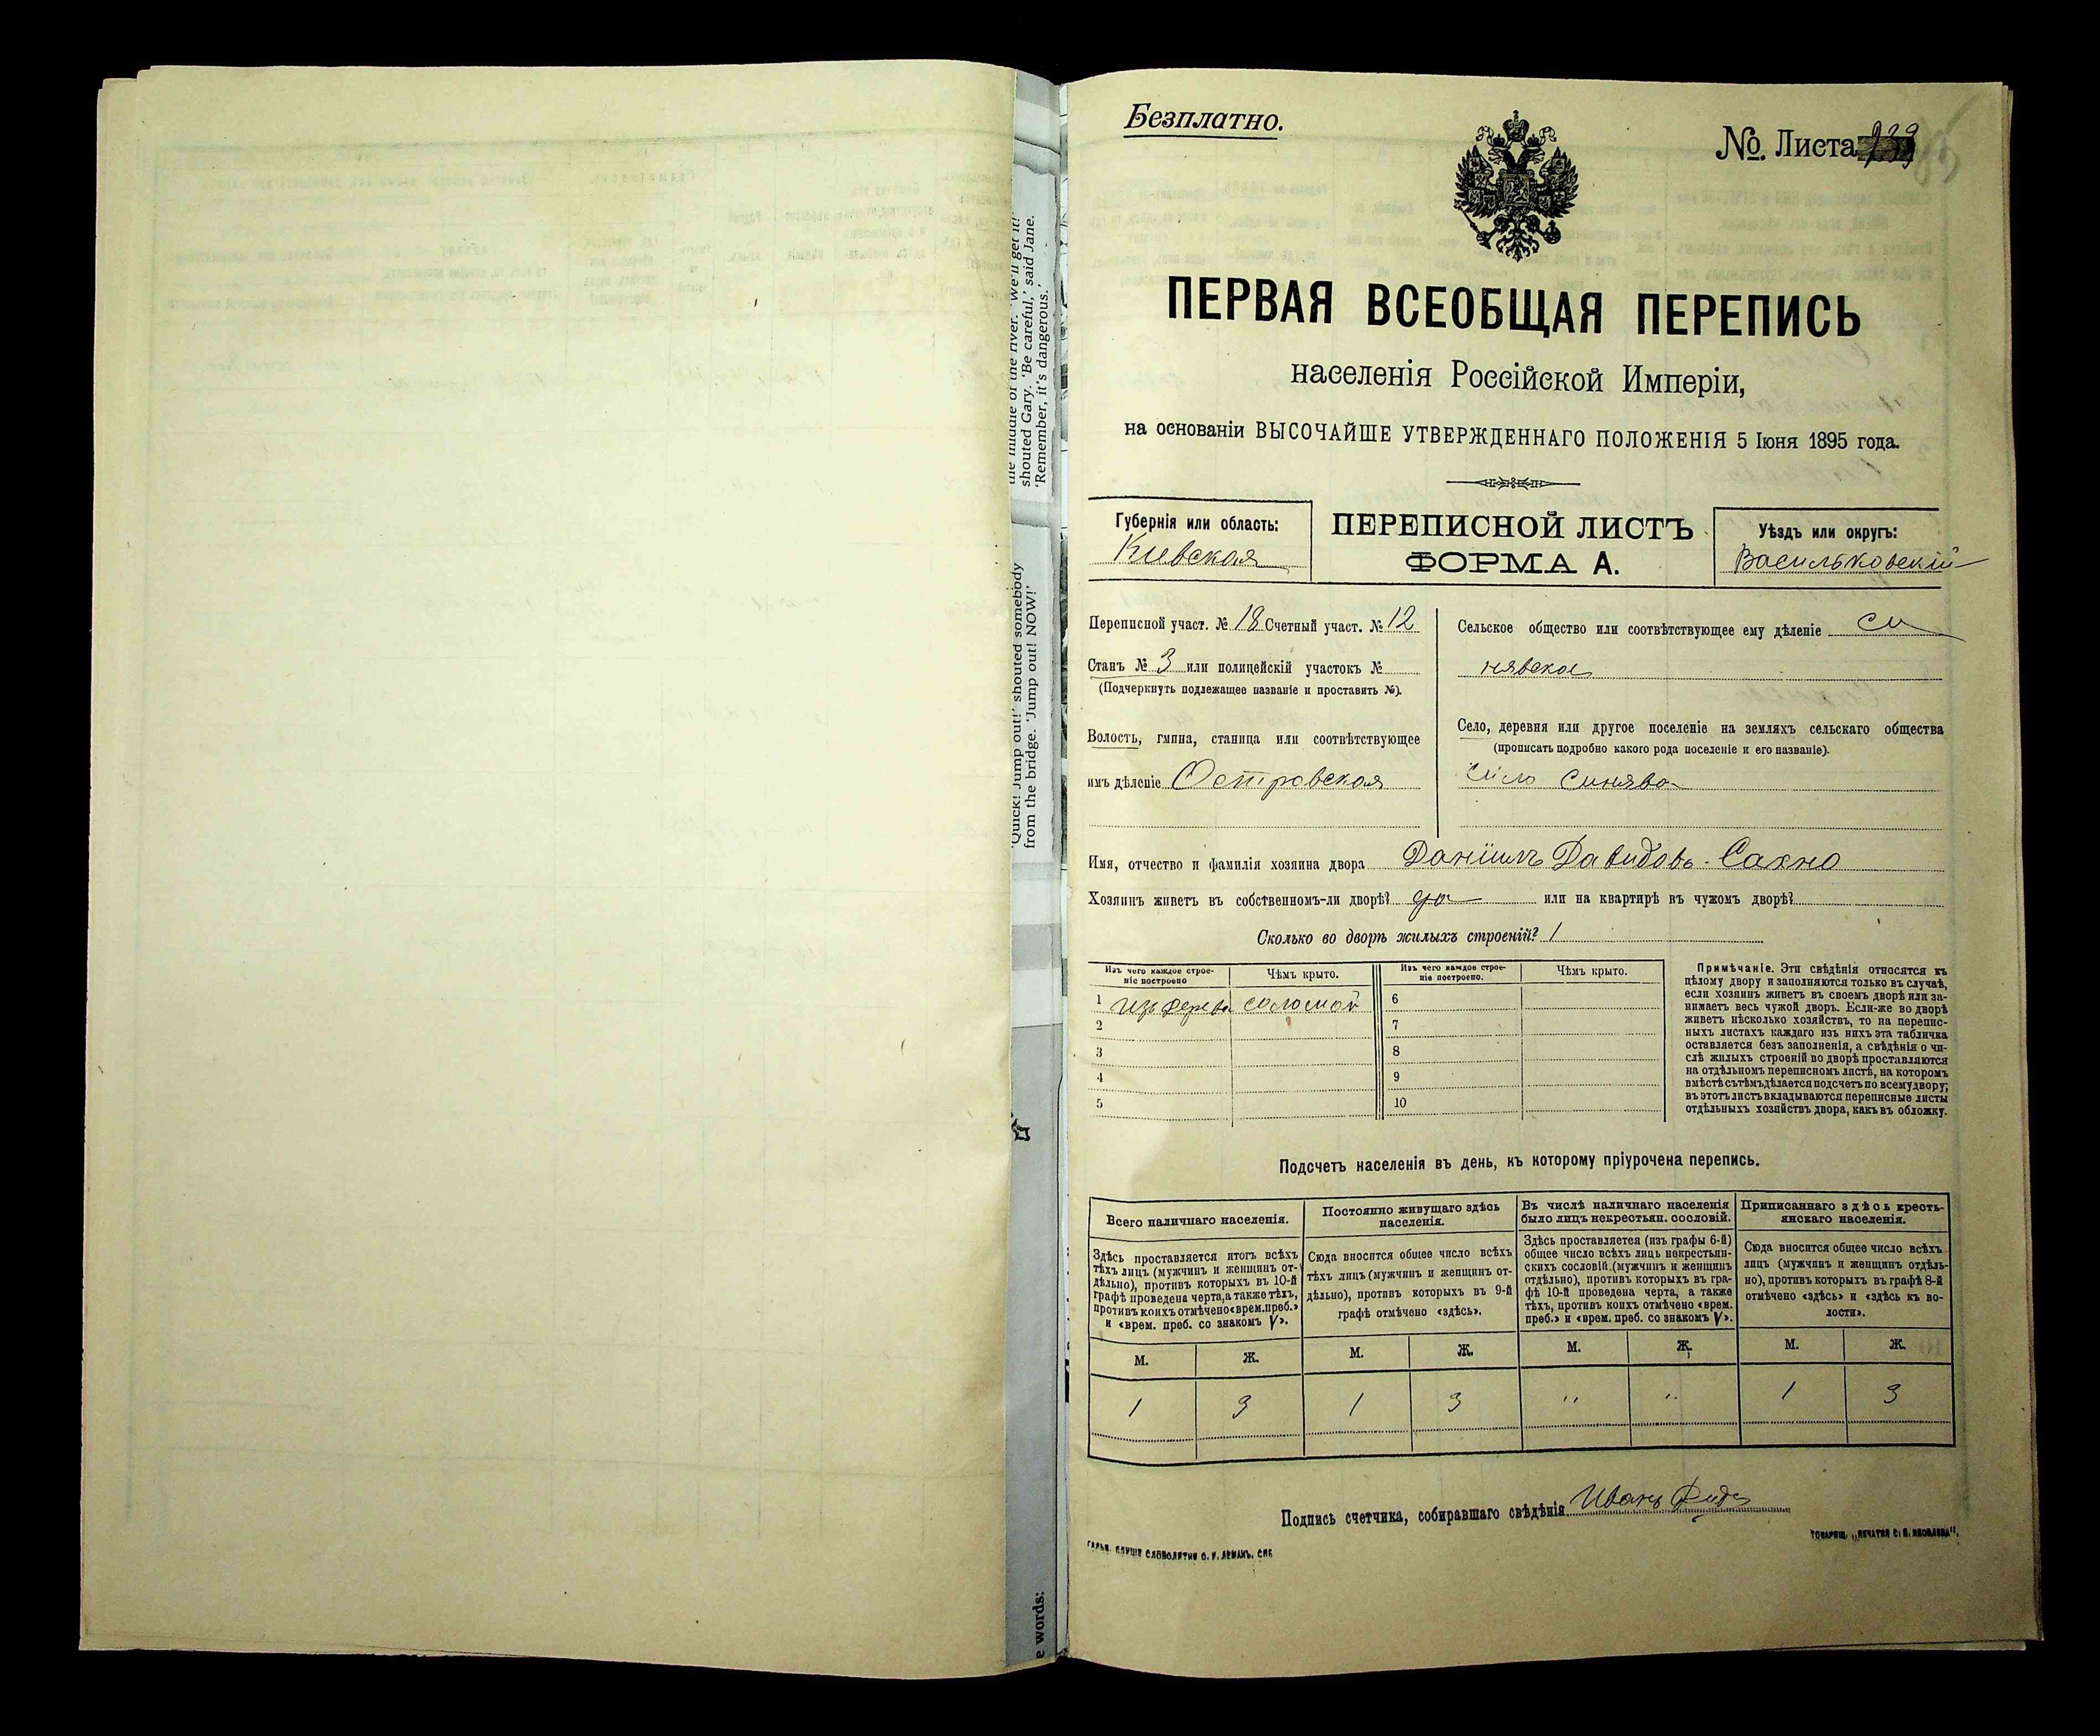 the middle of the river. 'We'll get it!'
shouted Gary. 'Be careful,' said Jane.
'Remember, it's dangerous.'
'Quick! Jump out!' shouted somebody
from the bridge. 'Jump out! NOW!'
e words:
Безплатно.
№. Листа
ПЕРВАЯ ВСЕОБЩАЯ ПЕРЕПИСЬ
населенія Россійской Имперіи,
на основаніи ВЫСОЧАЙШЕ УТВЕРЖДЕННАГО ПОЛОЖЕНІЯ 5 Іюня 1895 года.
Губернія или область:
Киевская
ПЕРЕПИСНОЙ ЛИСТЪ
ФОРМА А.
Уѣздъ или округъ:
Васильковскій
Переписной участ. № 18 Счетный участ. № 12
Станъ № 3 или полицейскій участокъ №
(Подчеркнуть подлежащее названіе и проставить №).
Волость, гмина, станица или соотвѣтствующее
имъ дѣленіе Островская
Сельское общество или соотвѣтствующее ему дѣленіе Си
нявское
Село, деревня или другое поселеніе на земляхъ сельскаго общества
(прописать подробно какого рода поселеніе и его названіе).
Село Синява
Имя, отчество и фамилія хозяина двора Даніилъ Давидовъ Сахно
Хозяинъ живетъ въ собственномъ-ли дворѣ? да или на квартирѣ въ чужомъ дворѣ?
Сколько во дворѣ жилыхъ строеній? 1
Изъ чего каждое строе-
ніе построено
Чѣмъ крыто.
Изъ чего каждое строе-
ніе построено.
Чѣмъ крыто.
1 изъ дерева соломой 6
2 7
3 8
4 9
5 10
Примѣчаніе. Эти свѣдѣнія относятся къ
цѣлому двору и заполняются только въ случаѣ,
если хозяинъ живетъ въ своемъ дворѣ или за-
нимаетъ весь чужой дворъ. Если-же во дворѣ
живетъ нѣсколько хозяйствъ, то на перепис-
ныхъ листахъ каждаго изъ нихъ эта табличка
оставляется безъ заполненія, а свѣдѣнія о чи-
слѣ жилыхъ строеній во дворѣ проставляются
на отдѣльномъ переписномъ листѣ, на которомъ
вмѣстѣ съ тѣмъ дѣлается подсчетъ по всему двору;
въ этотъ листъ вкладываются переписные листы
отдѣльныхъ хозяйствъ двора, какъ въ обложку.
Подсчетъ населенія въ день, къ которому пріурочена перепись.
Всего наличнаго населенія.
Здѣсь проставляется итогъ всѣхъ
тѣхъ лицъ (мужчинъ и женщинъ от-
дѣльно), противъ которыхъ въ 10-й
графѣ проведена черта, а также тѣхъ,
противъ коихъ отмѣчено «врем. преб.»
и «врем. преб. со знакомъ V».
Постоянно живущаго здѣсь
населенія.
Сюда вносится общее число всѣхъ
тѣхъ лицъ (мужчинъ и женщинъ от-
дѣльно), противъ которыхъ въ 9-й
графѣ отмѣчено «здѣсь».
Въ числѣ наличнаго населенія
было лицъ некрестьян. сословій.
Здѣсь проставляется (изъ графы 6-й)
общее число всѣхъ лицъ некрестьян-
скихъ сословій (мужчинъ и женщинъ
отдѣльно), противъ которыхъ въ гра-
фѣ 10-й проведена черта, а также
тѣхъ, противъ коихъ отмѣчено «врем.
преб.» и «врем. преб. со знакомъ V».
Приписаннаго здѣсь кресть-
янскаго населенія.
Сюда вносится общее число всѣхъ
лицъ (мужчинъ и женщинъ отдѣль-
но), противъ которыхъ въ графѣ 8-й
отмѣчено «здѣсь» и «здѣсь къ во-
лости».
М. Ж. М. Ж. М. Ж. М. Ж.
1 3 1 3 " " 1 3
Подпись счетчика, собиравшаго свѣдѣнія Иванъ
СЛОВОЛИТНИ О. И. ЛЕМАНЪ, СПБ
ТОВАРИЩ. „ПЕЧАТНЯ С. П. ЯКОВЛЕВА".